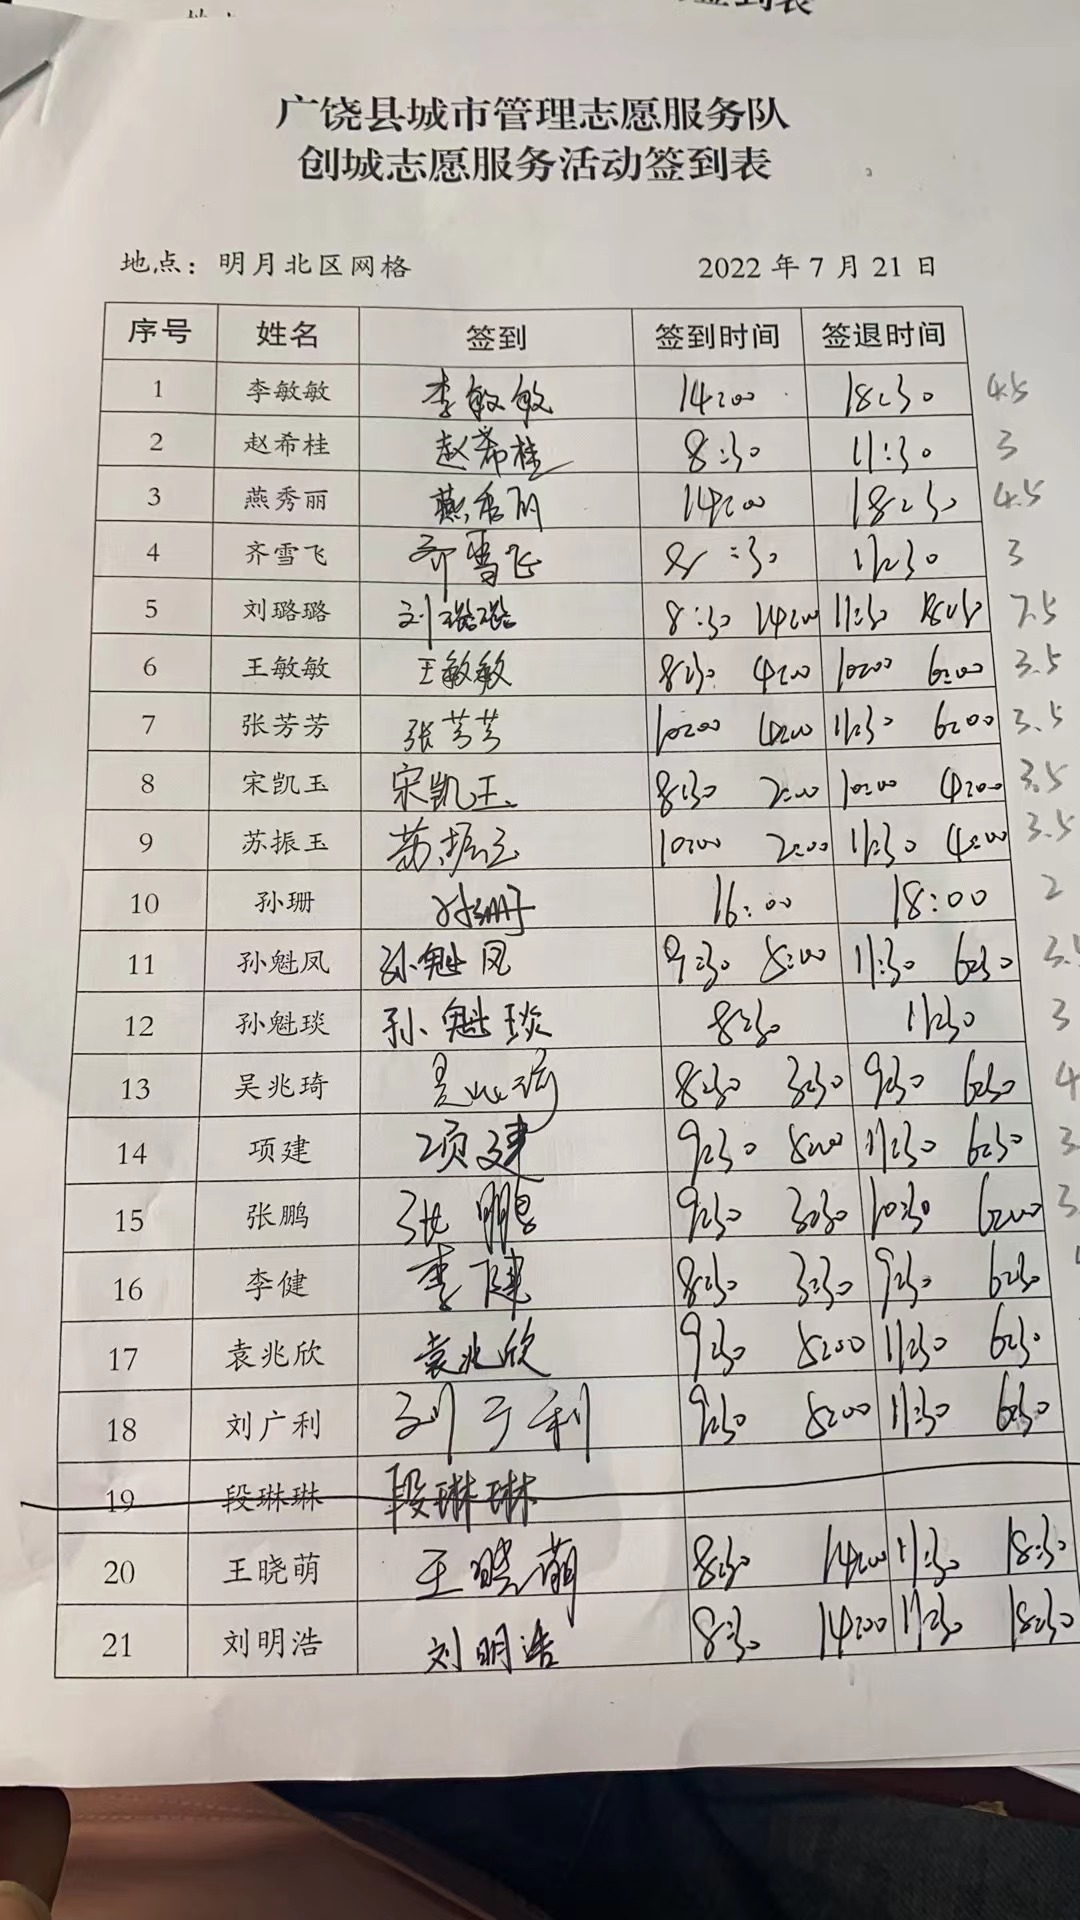 签到表
广饶县城市管理志愿服务队
创城志愿服务活动签到表
地点：明月北区网格 2022年7月21日
序号 姓名 签到 签到时间 签退时间
1 李敏敏 李敏敏 14:00 18:30 4.5
2 赵希桂 赵希桂 8:30 11:30 3
3 燕秀丽 燕秀丽 14:00 18:30 4.5
4 齐雪飞 齐雪飞 8:30 11:30 3
5 刘璐璐 刘璐璐 8:30 14:00 11:30 18:30 7.5
6 王敏敏 王敏敏 8:30 4:00 10:00 6:00 3.5
7 张芳芳 张芳芳 10:00 4:00 11:30 6:00 3.5
8 宋凯玉 宋凯玉 8:30 2:00 10:00 4:00 3.5
9 苏振玉 苏振玉 10:00 2:00 11:30 4:00 3.5
10 孙珊 孙珊 16:00 18:00 2
11 孙魁凤 孙魁凤 9:30 5:00 11:30 6:30 3.5
12 孙魁琰 孙魁琰 8:30 11:30 3
13 吴兆琦 吴兆琦 8:30 3:30 9:30 6:30 4
14 项建 项建 9:30 5:00 11:30 6:30 3.
15 张鹏 张鹏 9:30 3:30 10:30 6:00 3.
16 李健 李健 8:30 3:30 9:30 6:30
17 袁兆欣 袁兆欣 9:30 5:00 11:30 6:30
18 刘广利 刘广利 9:30 5:00 11:30 6:30
19 段琳琳 段琳琳
20 王晓萌 王晓萌 8:30 14:00 11:30 18:30
21 刘明浩 刘明浩 8:30 14:00 11:30 18:30